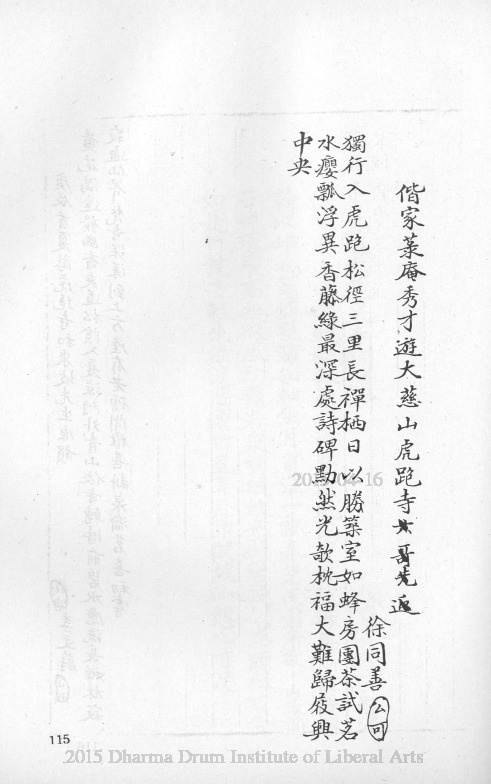 偕家菉庵秀才遊大慈山虎跑寺大哥先返
徐同善 公可
獨行入虎跑松徑三里長禪栖日以勝築室如蜂房團茶試茗
水癭瓢浮異香藤綠最深處詩碑黝然光欹枕福大難歸屐興
中央
115
2015 Dharma Drum Institute of Liberal Arts